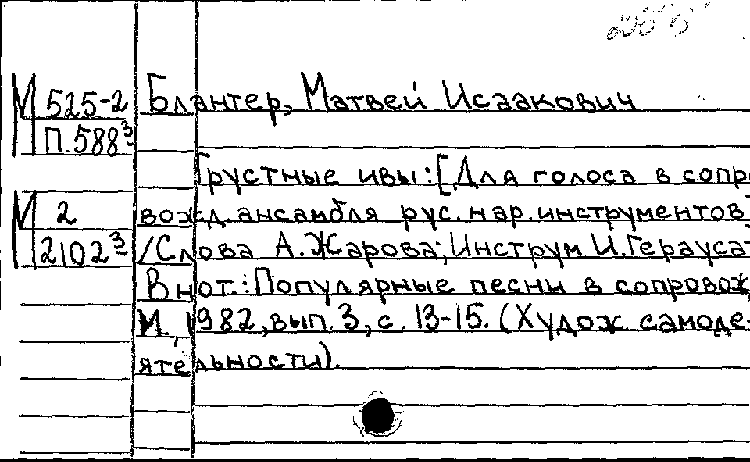 М 525-2 Блантер, Матвей Исаакович
П.588³
Грустные ивы: [Для голоса в сопро
М 2 вожд. ансамбля рус. нар. инструментов
2102³ /Слова А. Жарова; Инструм И. Герауса
В нот.: Популярные песни в сопровож
М., 1982, вып. 3, с. 13-15. (Худож самоде-
ятельности).